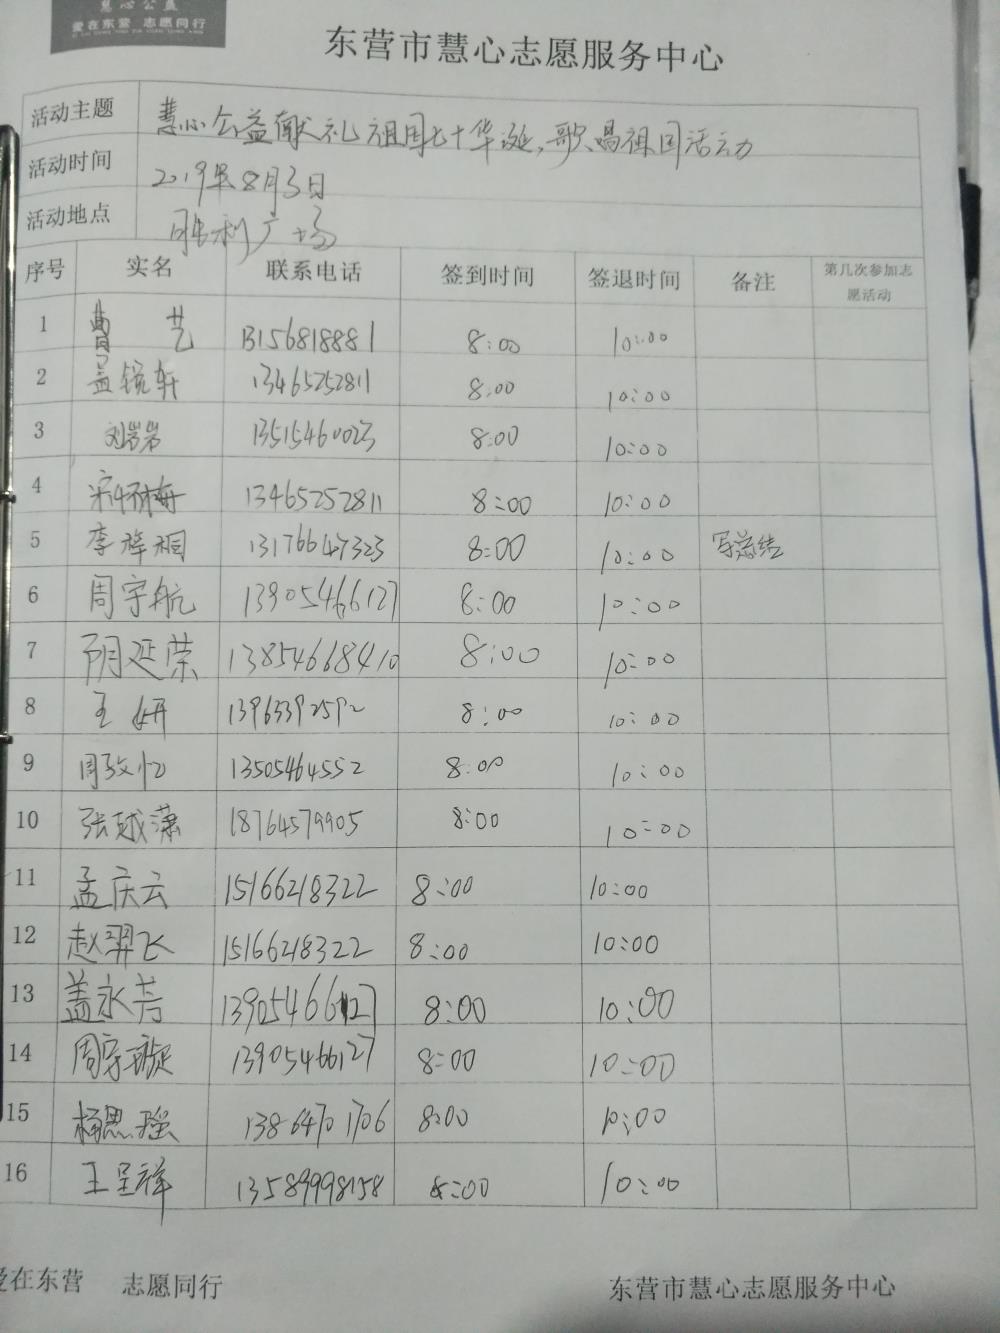 慧心公益
爱在东营 志愿同行
东营市慧心志愿服务中心
活动主题 慧心公益献礼祖国七十华诞,歌唱祖国活动
活动时间 2019年8月3日
活动地点 胜利广场
序号 实名 联系电话 签到时间 签退时间 备注 第几次参加志
愿活动
1 曹艺 13156818881 8:00 10:00
2 孟锐轩 13465252811 8:00 10:00
3 刘岩岩 13515460023 8:00 10:00
4 宋怀梅 13465252811 8:00 10:00
5 李祥桐 13176647323 8:00 10:00 写总结
6 周宇航 13905466127 8:00 10:00
7 阴延荣 13854668410 8:00 10:00
8 王妍 13963392592 8:00 10:00
9 周致忆 13505464552 8:00 10:00
10 张城潇 18764579905 8:00 10:00
11 孟庆云 15166218322 8:00 10:00
12 赵羿飞 15166218322 8:00 10:00
13 盖永芳 13905466127 8:00 10:00
14 周宇璇 13905466127 8:00 10:00
15 杨思瑶 13864701706 8:00 10:00
16 王呈祥 13589998158 8:00 10:00
爱在东营 志愿同行 东营市慧心志愿服务中心